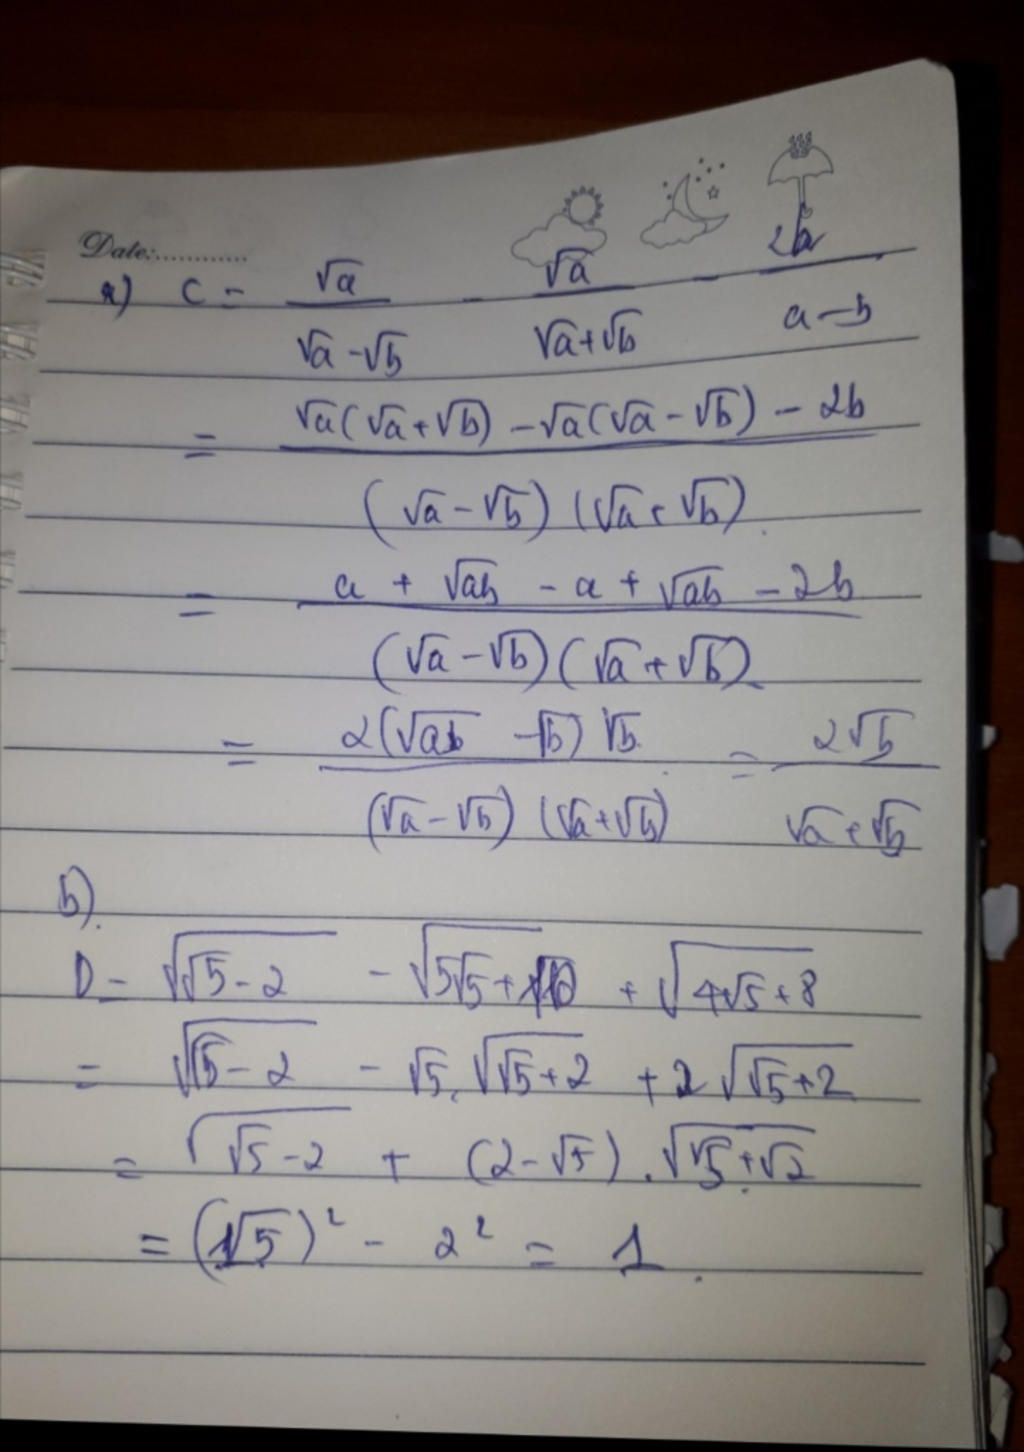 Date:............
a) C = √a/(√a - √b) - √a/(√a+√b) - 2b/(a-b)
= (√a(√a+√b) - √a(√a-√b) - 2b)/((√a-√b)(√a+√b))
= (a + √ab - a + √ab - 2b)/((√a-√b)(√a+√b))
= 2(√ab - √b)√b/((√a-√b)(√a+√b)) = 2√b/(√a+√b)
b).
D = √(√5-2) - √(5√5+10) + √(4√5+8)
= √(√5-2) - √5.√(√5+2) + 2√(√5+2)
= √(√5-2) + (2-√5).√(√5+√2)
= (√5)² - 2² = 1.